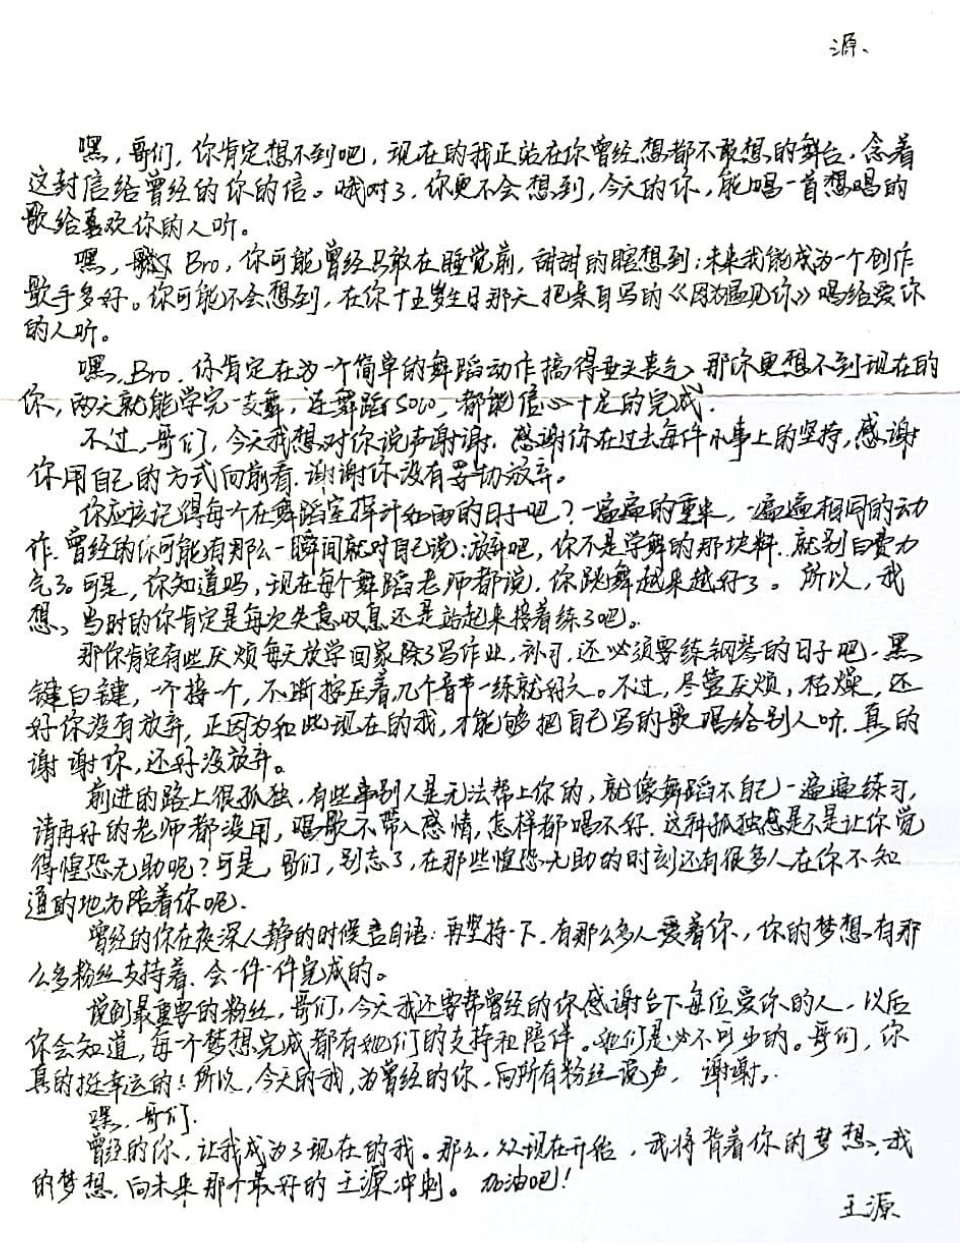 源、
嘿,哥们,你肯定想不到吧,现在的我正站在你曾经想都不敢想的舞台,念着
这封信给曾经的你的信。哦对了,你更不会想到,今天的你,能唱一首想唱的
歌给喜欢你的人听。
嘿,Bro,你可能曾经只敢在睡觉前,甜甜的瞎想到:未来我能成为一个创作
歌手多好。你可能不会想到,在你十五岁生日那天把亲自写的《因为遇见你》唱给爱你
的人听。
嘿,Bro.你肯定在为一个简单的舞蹈动作搞得垂头丧气,那你更想不到现在的
你,两天就能学完一支舞,连舞蹈solo,都能信心十足的完成.
不过,哥们,今天我想对你说声谢谢.感谢你在过去每件小事上的坚持,感谢
你用自己的方式向前看.谢谢你没有放弃。
你应该记得每个在舞蹈室挥汗如雨的日子吧?一遍遍的重来,一遍遍相同的动
作.曾经的你可能有那么一瞬间就对自己说:放弃吧,你不是学舞的那块料.就别白费力
气了。可是,你知道吗,现在每个舞蹈老师都说.你跳舞越来越好了。所以,我
想,当时的你肯定是每次失意叹息还是站起来接着练了吧。
那你肯定有些厌烦每天放学回家除了写作业,补习,还必须要练钢琴的日子吧.黑
键白键,一个接一个,不断按压着,几个音节一练就好久。不过,尽管厌烦,枯燥,还
好你没有放弃,正因为如此现在的我,才能够把自己写的歌唱给别人听.真的
谢谢你,还好没放弃。
前进的路上很孤独,有些事别人是无法帮上你的,就像舞蹈不自己一遍遍练习,
请再好的老师都没用,唱歌不带入感情,怎样都唱不好.这种孤独感是不是让你觉
得惶恐无助呢?可是,哥们,别忘了,在那些惶恐无助的时刻还有很多人在你不知
道的地方陪着你呢.
曾经的你在夜深人静的时候告自语:再坚持一下.有那么多人爱着你,你的梦想有那
么多粉丝支持着.会一件一件完成的。
说到最重要的粉丝,哥们,今天我还要帮曾经的你感谢台下每位爱你的人.以后
你会知道,每一个梦想完成都有她们的支持和陪伴。她们是必不可少的。哥们,你
真的挺幸运的!所以,今天的我,为曾经的你,向所有粉丝说声,谢谢。
嘿,哥们.
曾经的你,让我成为了现在的我。那么,从现在开始,我将背着你的梦想,我
的梦想,向未来那个最好的王源冲刺。加油吧!
王源